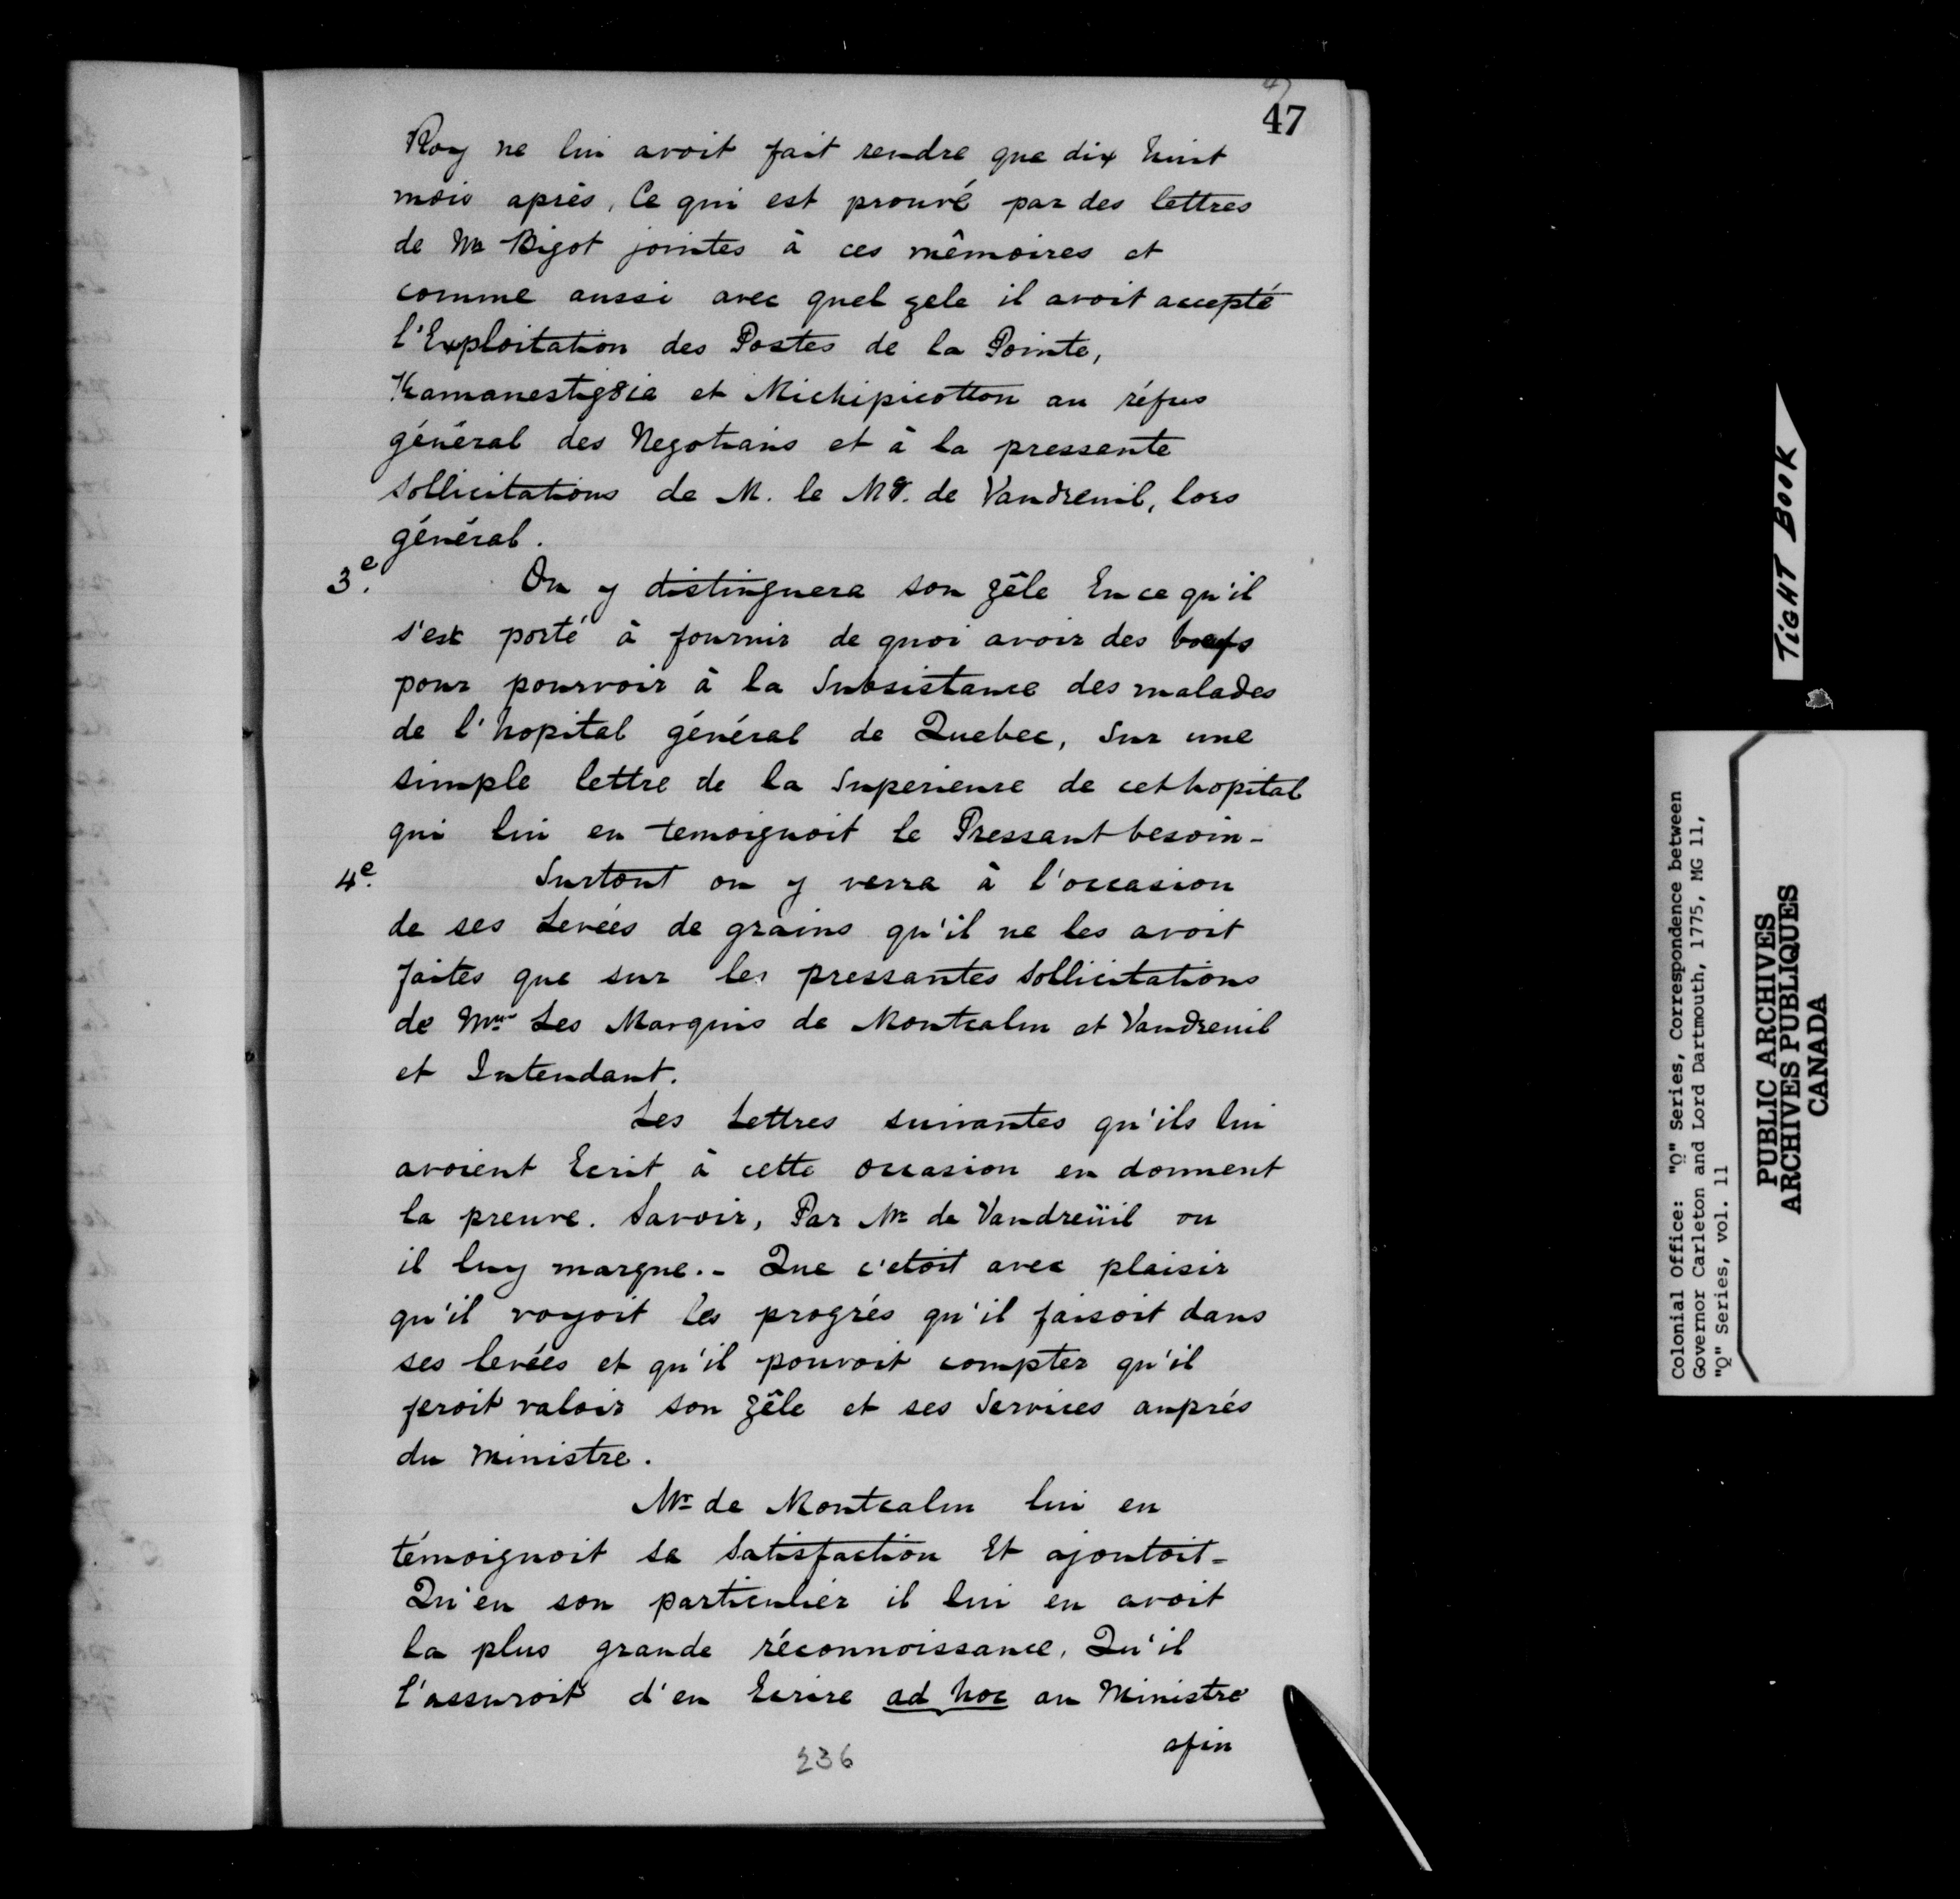 47
47
Roy ne lui avoit fait rendre que dix huit
mois après, Ce qui est prouvé par des lettres
de Mr Bigot jointes à ces mêmoires et
comme aussi avec quel zele il avoit accepté
l'Exploitation des Postes de la Pointe,
Kamanestig8ia et Michipicotton au réfus
général des Negotians et à la pressente
sollicitations de M. le Mq. de Vaudreuil, lors
général.
3e. On y distinguera son zêle En ce qu'il
s'est porté à fournir de quoi avoir des boeufs
pour pourvoir à la Subsistance des malades
de l'hopital général de Quebec, Sur une
simple lettre de la Superieure de cet hopital
qui lui en temoignoit le Pressant besoin -
4e. Surtout on y verra à l'occasion
de ses Levées de grains qu'il ne les avoit
faites que sur les pressantes sollicitations
de Mrs Les Marquis de Montcalm et Vaudreuil
et Intendant.
Les Lettres suivantes qu'ils lui
avoient Ecrit à cette occasion en donnent
la preuve. Savoir, Par Mr de Vaudreüil ou
il luy marque. - Que c'etoit avec plaisir
qu'il voyoit les progrés qu'il faisoit dans
ses levées et qu'il pouvoit compter qu'il
feroit valoir son zêle et ses Services auprés
du Ministre.
Mr de Montcalm lui en
témoignoit sa Satisfaction Et ajoutoit -
Qu'en son particulier il lui en avoit
la plus grande réconnoissance, Qu'il
l'assuroit d'en Ecrire ad hoc au Ministre
afin
236
TIGHT BOOK
Colonial Office: "Q" Series, Correspondence between
Governor Carleton and Lord Dartmouth, 1775, MG 11,
"Q" Series, vol. 11
PUBLIC ARCHIVES
ARCHIVES PUBLIQUES
CANADA